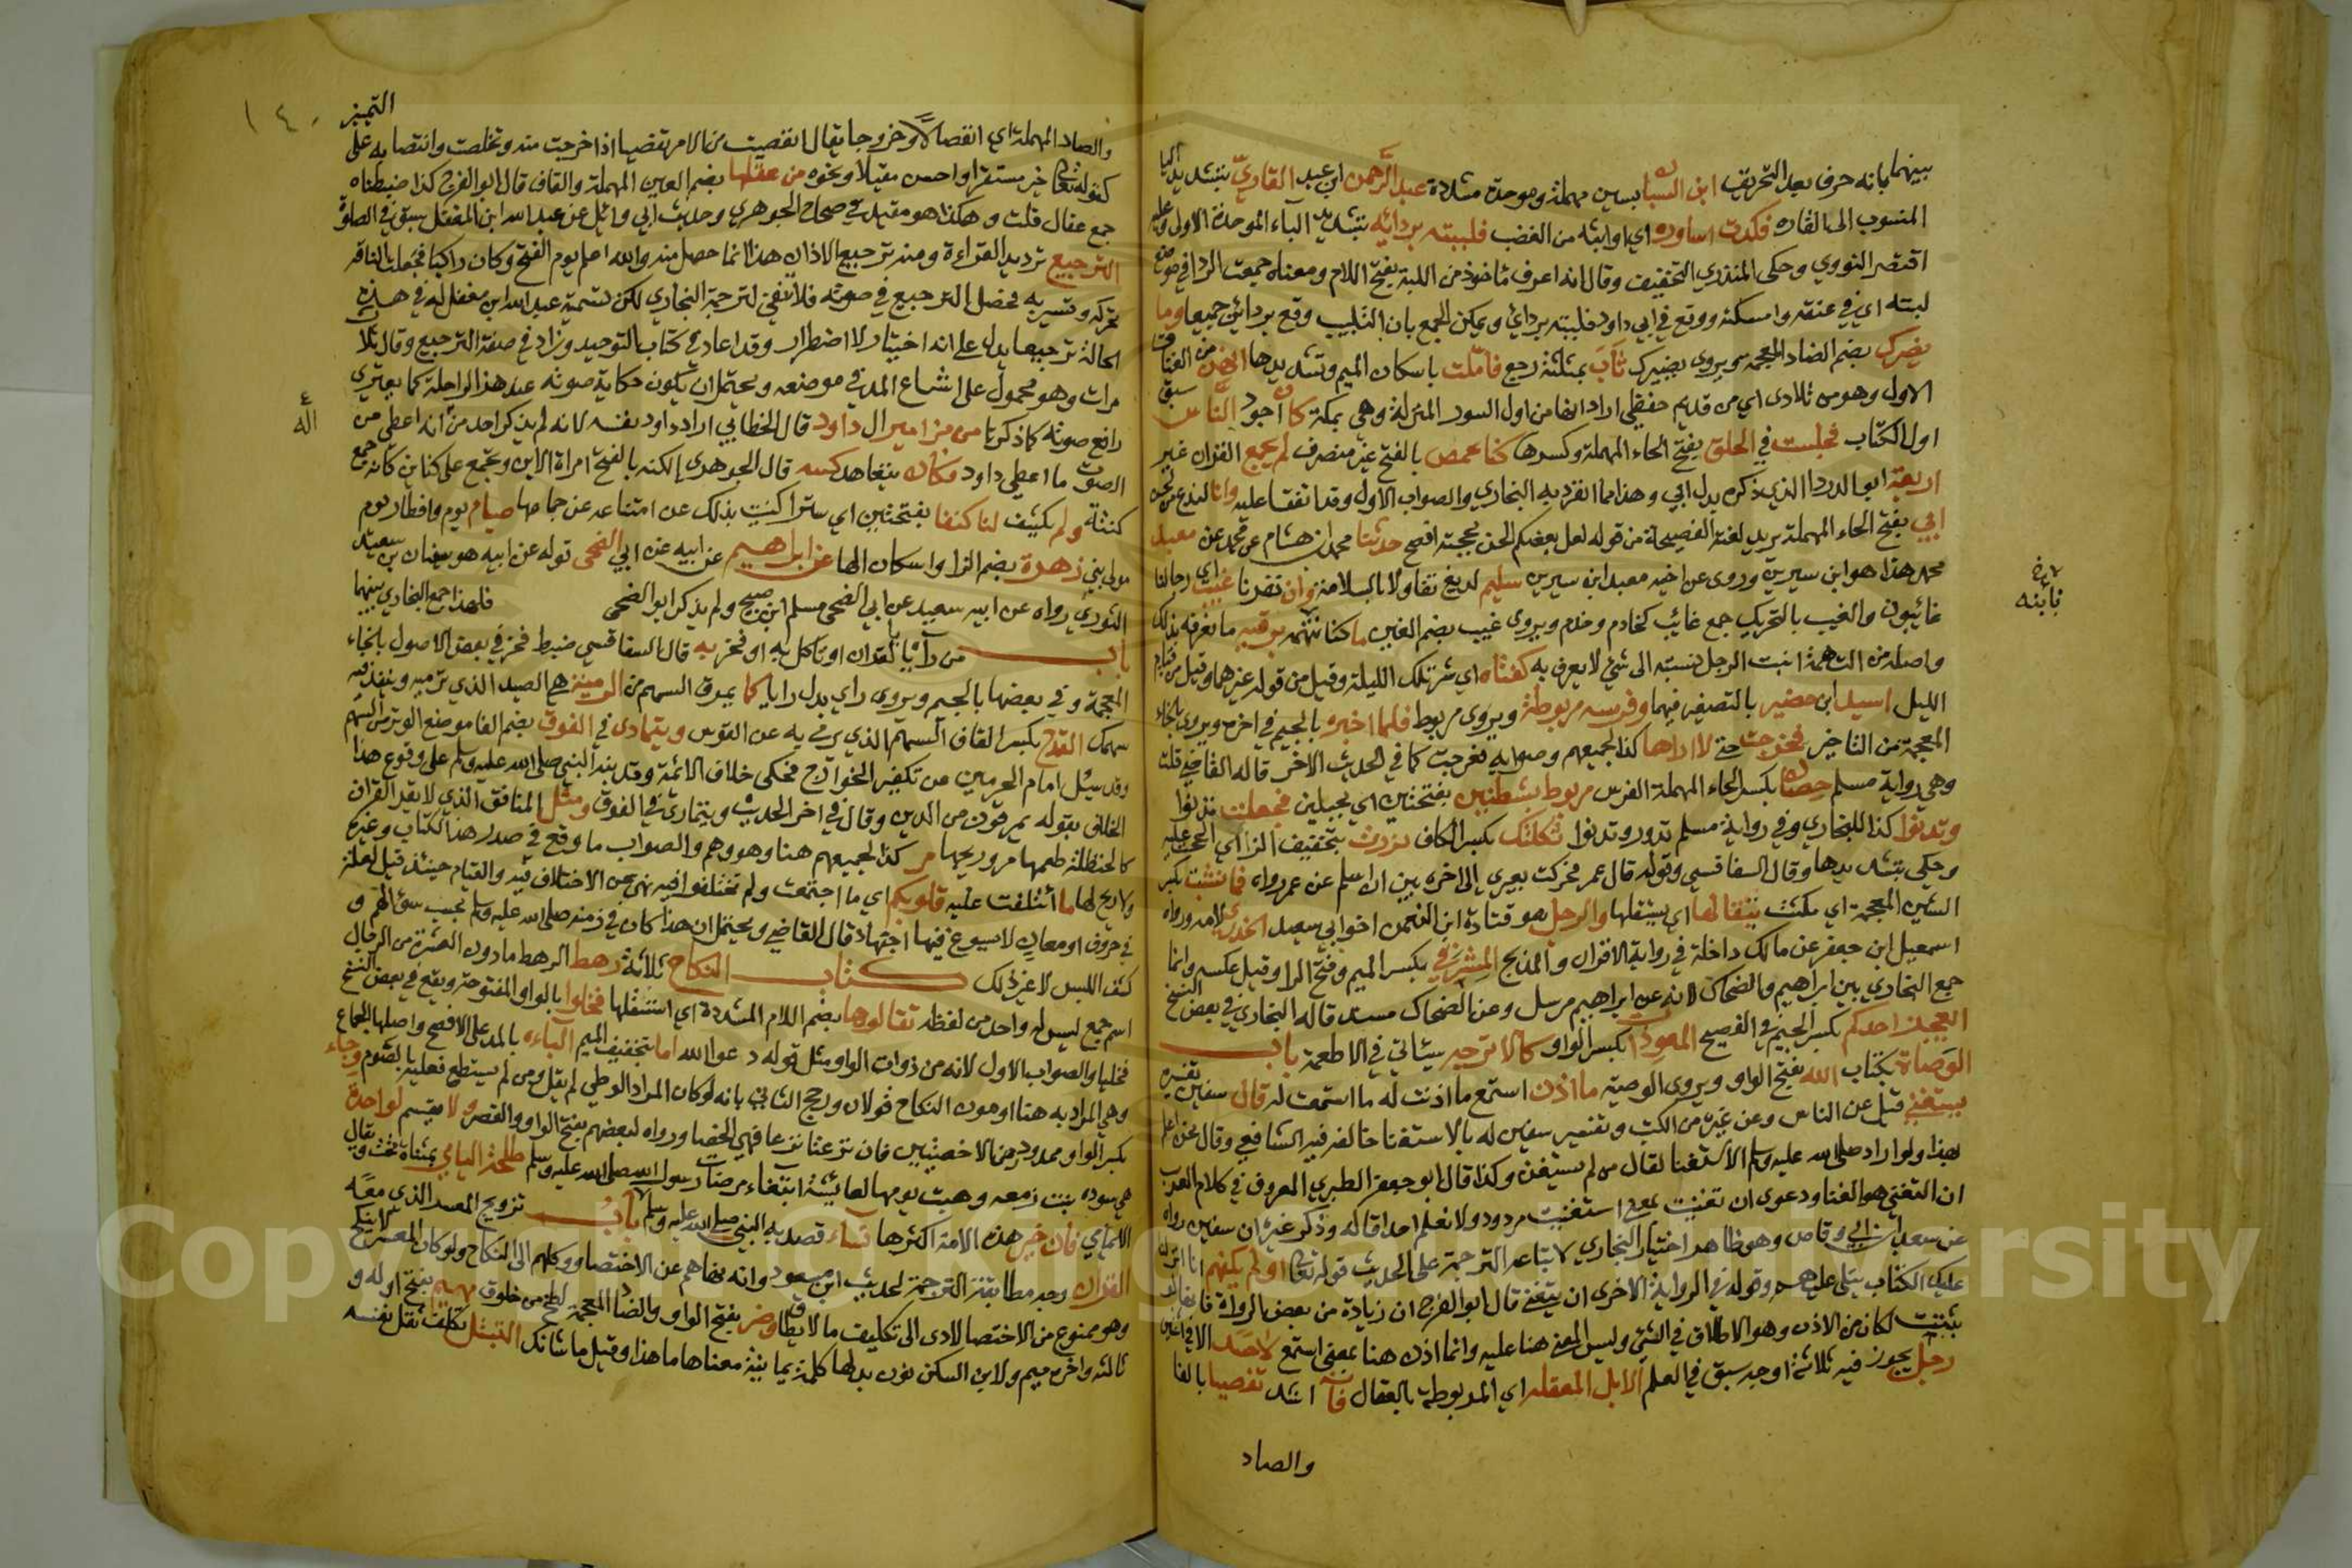 بينهما بانه حرف بعد التحريف ابن السباب بسين مهملة وموحدة مشددة عبد الرحمن ابن عبد القاريّ بتشديد اليا
المنسوب الى القاره فكدت اساوره اي اواثبه من الغضب فلببته بردائه بتشديد الباء الموحدة الاولى وعليه
اقتصر النووي وحكى المنذري التخفيف وقال انه اعرف ماخوذ من اللبة بفتح اللام ومعناه جمعت الردا في موضع
لبته اي في عنقه وامسكته ووقع في ابي داود فلببته بردائي ويمكن الجمع بان التلبيب وقع بردائين جميعا وما
يضرك بضم الضاد المعجمه ويروى يضيرك ثاب بمثلثة رجع فاملت باسكان الميم وتشديدها انهن من العتاق
الاول وهو من تلادى اي من قديم حفظي اراد انها من اول السور المنزلة وهي بمكة كان اجود الناس سبق
اول الكتاب فجلست في الحلق بفتح الحاء المهملة وكسرها كنا بحمص بالفتح غير منصرف لم يجمع القران غير
اربعة ابو الدردا الذي ذكره بدل ابي وهذا مما انفرد به البخاري والصواب الاول وقد اتفقا عليه وانا لندع من لحن
ابي بفتح الحاء المهملة يريد لغته الفصيحة من قوله لعل بعضكم الحن بحجته افصح حدثنا محمد ابن هشام عن محمد عن معبد
محمد هذا هو ابن سيرين وروى عن اخيه معبد ابن سيرين سليم لديغ تفاولا بالسلامة وان نفرنا غيب اي رجالنا
غائبون والغيب بالتحريك جمع غائب كخادم وخدم ويروى غيب بضم الغين ما كنا نتهمه برقيه ما نعرفه بذلك
واصله من التهمة ابنت الرجل نسبته الى شئ لا يعرف به كفتاه اي شر تلك الليلة وقيل من قوله غيرهما وقيل من قيام
الليل اسيد ابن حضير بالتصغير فيهما وفرسه مربوطة ويروى مربوط فلما اخبره بالجيم في اخره ويروى بالخاء
المعجمة من التاخير فخرجت حتى لا اراها كذا لجميعهم وصوابه فعرجت كما في الحديث الاخر قاله القاضي قلت
وهي رواية مسلم حصان بكسر الحاء المهملة الفرس مربوط بشطنين بفتحتين اي بحبلين فجعلت تدنوا
وتدنوا كذا للبخاري وفي رواية مسلم تدور وتدنوا ثكلتك بكسر الكاف نزرت بتخفيف الزاي الححت عليه
وحكى بتشديدها وقال السفاقسي وقوله قال عمر فحركت بعيري الى اخره يبين ان اسلم عن عمر رواه فما نشبت بكسر
الشين المعجمة اي مكثت يتقالها اي يستقلها والرجل هو قتادة ابن النعمن اخو ابي سعيد الخدري لامه ورواه
اسمعيل ابن جعفر عن مالك داخلة في رواية الاقران والمذبح المشرقي بكسر الميم وفتح الرا وقيل عكسه وانما
جمع البخاري بين ابراهيم والضحاك لانه عن ابراهيم مرسل وعن الضحاك مسند قاله البخاري في بعض النسخ
ايعجز احدكم بكسر الجيم في الفصيح المعوذات بكسر الواو كالاترجه سياتي في الاطعمة باب
الوصاة بكتاب الله بفتح الواو ويروى الوصيه ما اذن استمع ما اذنت له ما استمعت له قال سفين تفسيره
يستغني قيل عن الناس وعن غيره من الكتب وتفسير سفين له بالاستغنا خالفه فيه الشافعي وقال نحن اعلم
بهذا ولو اراد صلى الله عليه وسلم الاستغنا لقال من لم يستغن وكذا قال ابو جعفر الطبري المعروف في كلام العرب
ان التغني هو الغنا ودعوى ان تغنيت بمعنى استغنيت مردود ولا نعلم احدا قاله وذكر غيره ان سفين رواه
عن سعد ابن ابي وقاص وهو ظاهر اختيار البخاري لاتباعه الترجمة على الحديث قوله تعالى اولم يكفهم انا انزلنا
عليك الكتاب يتلى عليهم وقوله في الرواية الاخرى ان يتغنى قال ابو الفرج ان زيادة من بعض الرواة
ثبتت لكان من الاذن وهو الاطلاق في الشئ وليس المعنى هنا عليه وانما اذن هنا بمعنى استمع لا حسد الا في اثنين
رجل يجوز فيه ثلاثة اوجه سبق في العلم الابل المعقله اي المربوطة بالعقال اشد تفصيا بالفا
والصاد
بابنه
١٤٠
التمييز
والصاد المهملة اي انفصالا وخروجا يقال تفصيت من الامر تفصيا اذا خرجت منه وتخلصت وانتصابه على
كقوله تعالى خير مستقرا واحسن مقيلا ونحوه من عقلها بضم العين المهملة والقاف قال ابو الفرج كذا ضبطناه
جمع عقال قلت وهكذا هو مقيد في صحاح الجوهري وحديث ابي وائل عن عبد الله ابن المغفل سبق في الصلوة
الترجيع ترديد القراءة ومنه ترجيع الاذان هذا انما حصل منه والله اعلم يوم الفتح وكان راكبا فجعلت الناقة
تحركه وتسير به فحصل الترجيع في صوته فلا تنهض لترجمة البخاري لكن تسمية عبد الله ابن مغفل له في هذه
الحالة ترجيعا يدل على انه اختيار لا اضطرار وقد اعاده في كتاب التوحيد وزاد في صفة الترجيع وقال ثلاث
مرات وهو محمول على اشباع المد في موضعه ويحتمل ان يكون حكاية صوته عند هذا الراحلة كما يعتري
رافع صوته كما ذكرنا من مزامير ال داود قال الخطابي اراد داود نفسه لانه لم يذكر احد من اله انه اعطي من
الصوت ما اعطي داود فكان يتعاهد كنته قال الجوهري الكنه بالفتح امراة الابن وتجمع على كناين كانه جمع
كنتة ولم يكشف لنا كنفا بفتحتين اي سترا كنيت بذلك عن امتناعه عن جماعها صيام يوم وافطار يوم
مولى بني زهرة بضم الزا واسكان الها عن ابراهيم عن ابيه عن ابي الضحى قوله عن ابيه هو سفيان بن سعيد
الثوري رواه عن ابيه سعيد عن ابي الضحى مسلم ابن صبيح ولم يذكر ابو الضحى فلهذا جمع البخاري بينهما
باب من رايا بالقران او تاكل به او فخر به قال السفاقسي ضبط فخر في بعض الاصول بالخاء
المعجمة وفي بعضها بالجيم ويروى راي بدل رايا كما يمرق السهم من الرمية هي الصيد الذي ترميه وينفذ فيه
سهمك القدح بكسر القاف السهم الذي يرمى به عن القوس ويتمادى في الفوق بضم الفا موضع الوتر من السهم
وقد سئل امام الحرمين عن تكفير الخوارج فحكى خلاف الائمة وقد نبه النبي صلى الله عليه وسلم على وقوع هذا
الخلاف بقوله يمرقون من الدين وقال في اخر الحديث ويتمارى في الفوق ومثل المنافق الذي لا يقرا القران
كالحنظلة طعمها مر وريحها مر كذا لجميعهم هنا وهو وهم والصواب ما وقع في صدر هذا الكتاب وغيره
ولا ريح لها ما ائتلفت عليه قلوبكم اي ما اجتمعت ولم تختلفوا فيه نهى عن الاختلاف فيه والقيام حينئذ قيل لعله
في حروف او معان لا يسوغ فيها اجتهاد قال القاضي ويحتمل ان هذا كان في زمنه صلى الله عليه وسلم بحسب سؤالهم و
كشف اللبس لا غير ذلك كتاب النكاح ثلاثة رهط الرهط ما دون العشرة من الرجال
اسم جمع ليس له واحد من لفظه تقالوها بضم اللام المشددة اي استقلها فخلوا بالواو المفتوحة ويقع في بعض النسخ
فخليا والصواب الاول لانه من ذوات الواو مثل قوله دعوا الله اما بتخفيف الميم الباءه بالمد على الافصح واصلها الجماع
وهي المراد به هنا او مون النكاح قولان ورجح الثاني بانه لو كان المراد الوطي لم يقل ومن لم يستطع فعليه بالصوم وجاء
بكسر الواو ممدود رض الاخصيين فان نزعتا نزعا فهي الخصا ورواه بعضهم بفتح الواو والقصر ولا يقسم لواحدة
هي سوده بنت زمعه وهبت يومها لعائشة ابتغاء مرضات رسول الله صلى الله عليه وسلم طلحة اليامي بمثناة تحت ويقال
الايامي فان خير هذه الامة اكثرها نساء قصد به النبي صلى الله عليه وسلم باب تزويج المعسر الذي معه
القران وجه مطابقة الترجمة لحديث ابن مسعود وانه نهاهم عن الاختصا ووكلهم الى النكاح ولو كان المعسر لا ينكح
وهو ممنوع من الاختصا لادى الى تكليف ما لا يطاق وضر بفتح الواو والضاد المعجمة لطخ من خلوق مهيم بفتح اوله و
ثالثه واخره ميم ولابن السكن نون بدلها كلمة يمانية معناها ما هذا وقيل ما شانك التبتل تكلف نقل نفسه
اله